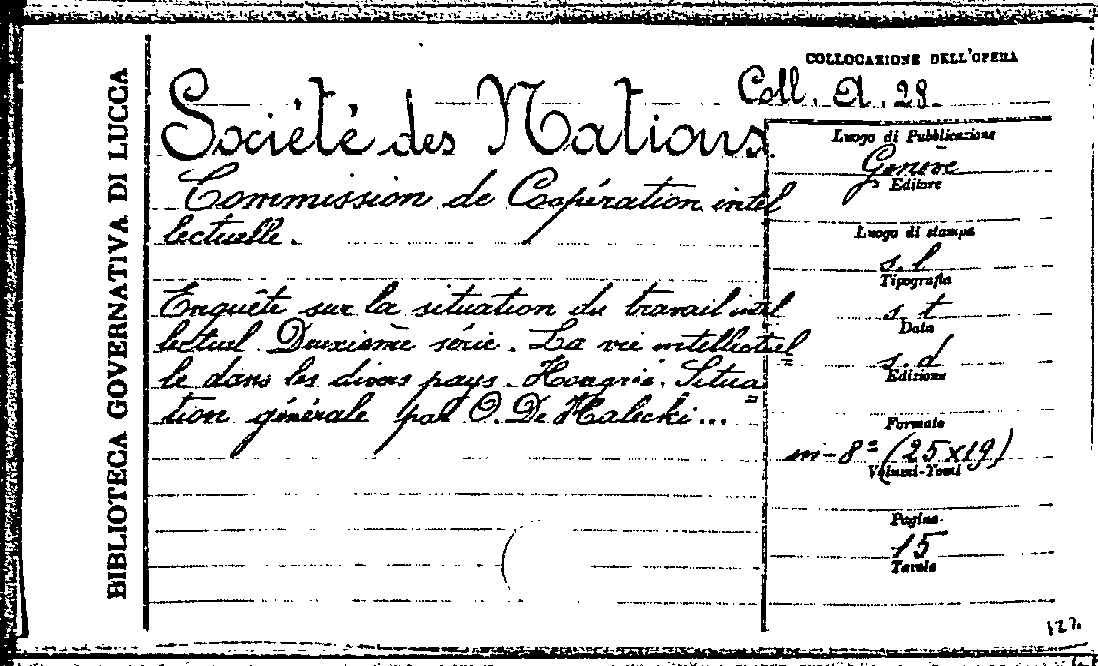 BIBLIOTECA GOVERNATIVA DI LUCCA
COLLOCAZIONE DELL'OPERA
Coll. A. 28.
Société des Nations.
Commission de Coopération intel
lectuelle.
Enquête sur la situation du travail intel
lectuel Deuxième série. La vie intellectuel
le dans les divers pays. Hongrie. Situa
tion générale par O. De Halecki...
Luogo di Pubblicazione
Genève
Editore
Luogo di stampa
s. l
Tipografia
s. t
Data
s. d
Edizione
Formato
in-8° (25x19)
Volumi-Tomi
Pagine
15
Tavole